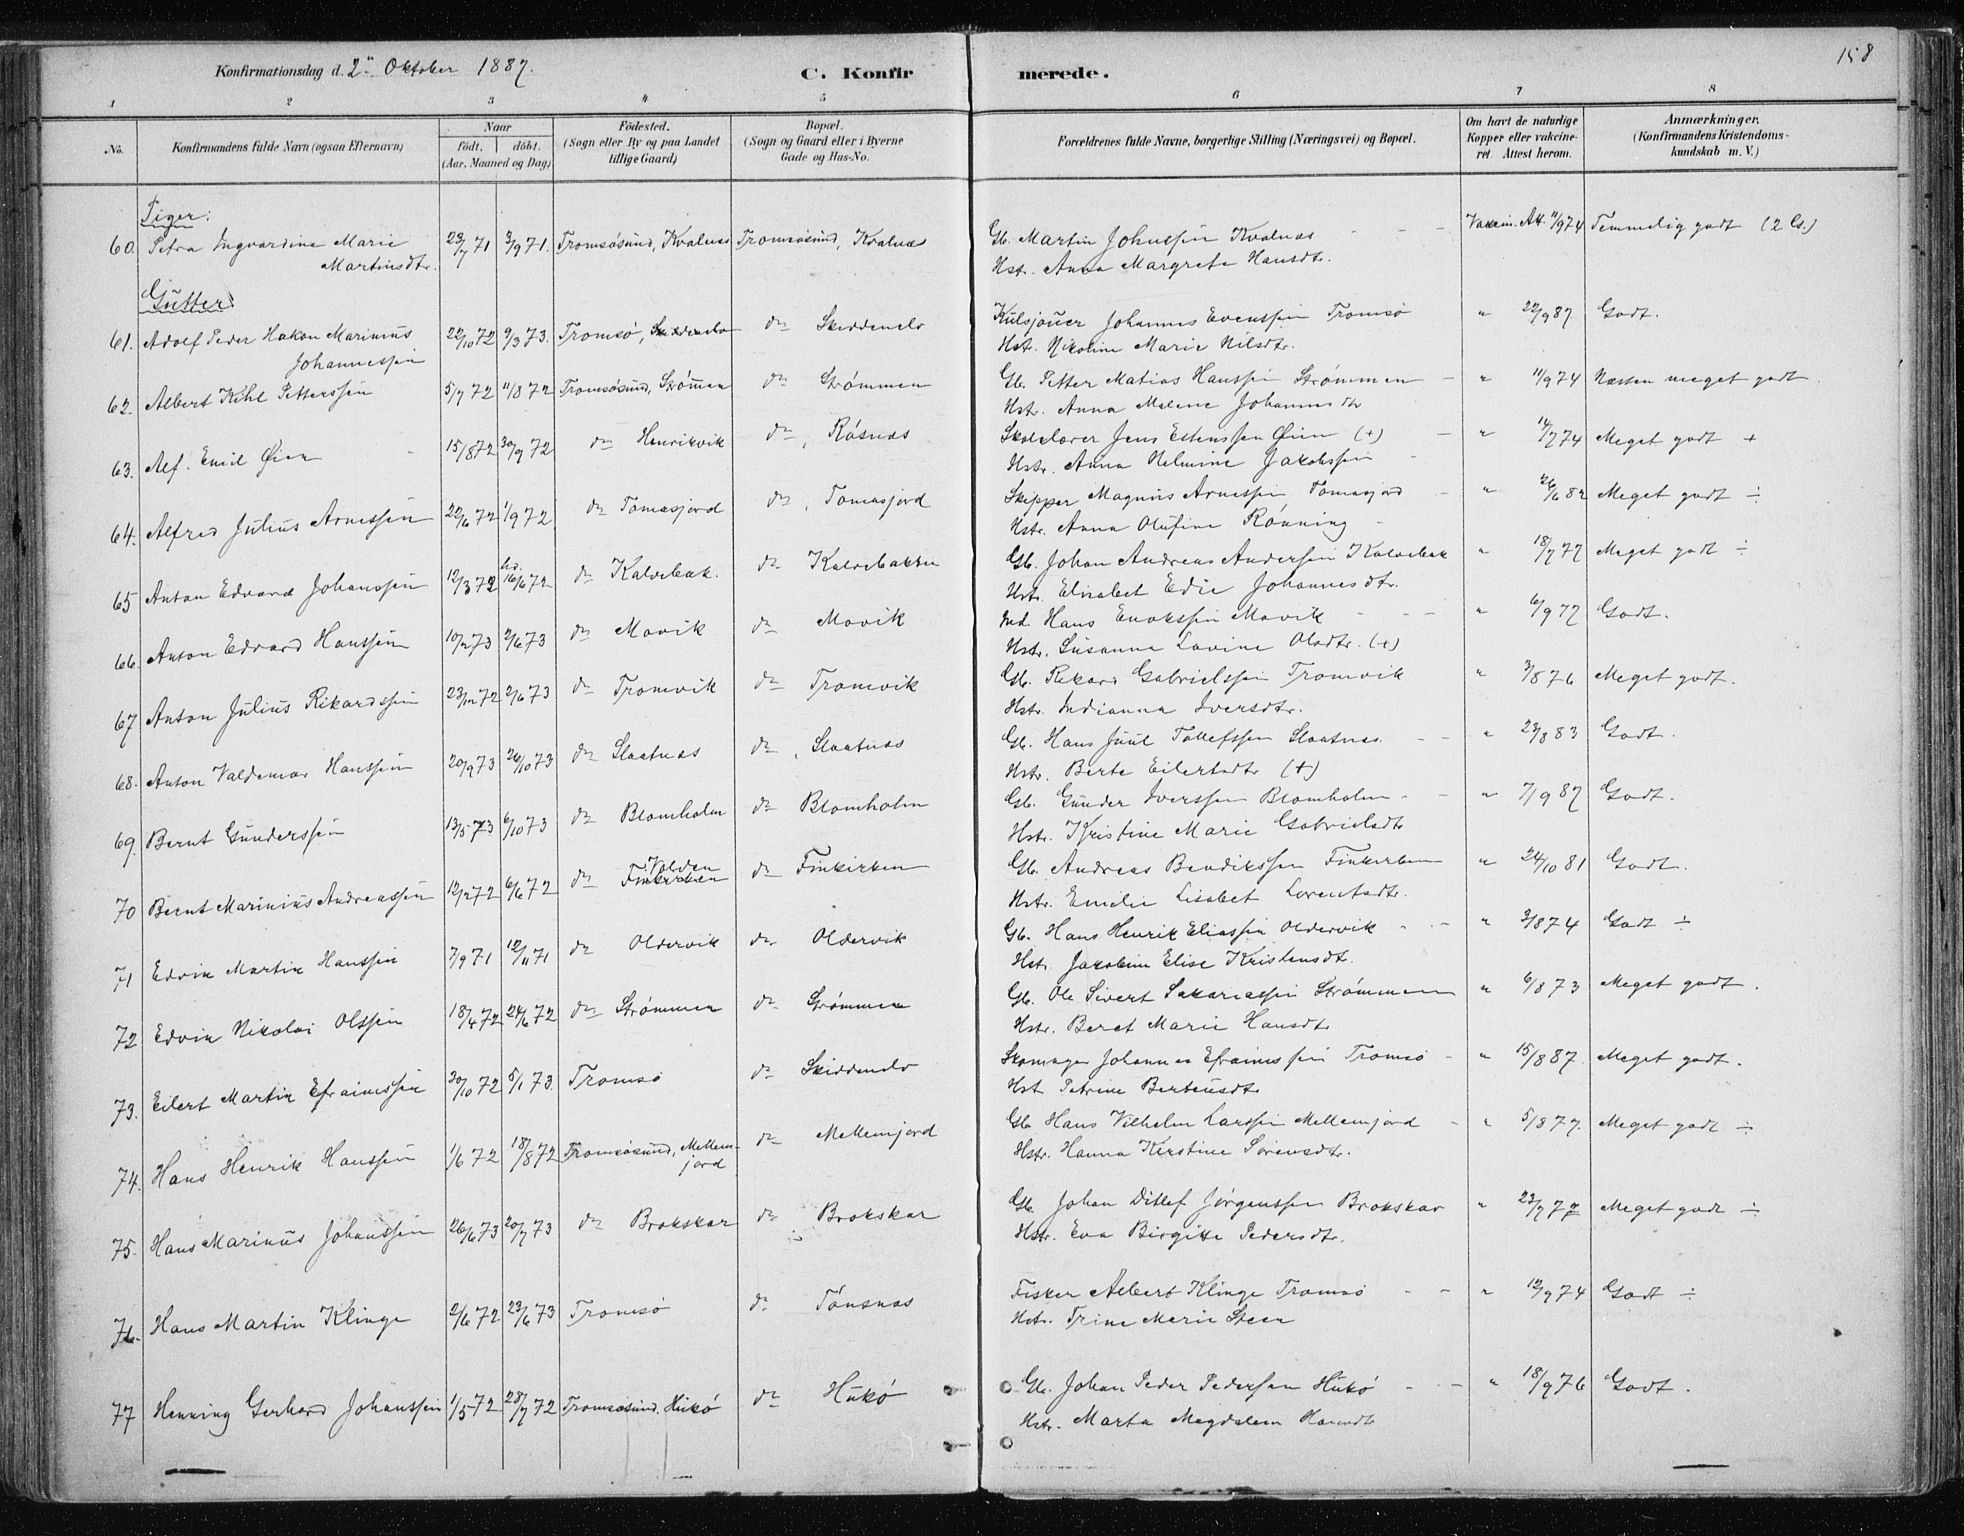 158
Konfirmationsdag d. 2den Oktober 1887. C. Konfirmerede.
1 2 3 4 5 6 7 8
No. Konfirmandens fulde Navn (ogsaa Efternavn) Naar født. døbt. (Aar, Maaned og Dag) Fødested. (Sogn eller By og paa Landet tillige Gaard) Bopæl. (Sogn og Gaard eller i Byerne Gade og Hus-No. Forældrenes fulde Navne, borgerlige Stilling (Næringsvei) og Bopæl. Om havt de naturlige Kopper eller vakcineret. Attest herom. Anmærkninger. (Konfirmandens Kristendomskundskab m. V.)
Piger:
60. Petra Ingvardine Marie Martinsdtr. 23/7 71 3/9 71. Tromsøsund, Kvalnæs Tromsøsund, Kvalnæs Gb. Martin Johnssen Kvalnæs Vakcin. Att. 11/9 74 Temmelig godt (2 Cs.)
Hstr. Anna Margrete Hansdtr.
Gutter:
61. Adolf Peder Hakon Marinius Johannessen 22/10 72 9/3 73. Tromsø, Skiddenelv do Skiddenelv Kulsjouer Johannes Evenssen Tromsø " 22/9 87 Godt.
Hstr. Nikoline Marie Nilsdtr.
62. Albert Kihl Petterssen 5/7 72 11/8 72 Tromsøsund, Strømmen do Strømmen Gb. Petter Matias Hanssen Strømmen " 11/9 74 Næsten meget godt
Hstr. Anna Malene Johannesdtr
63. Alf. Emil Øien 15/8 72 30/9 72 do Henrikvik do, Røsnæs Skolelærer Jens Estenssen Øien (+) " 14/7 74 Meget godt +
Hstr. Anna Helmine Jakobssen
64. Alfred Julius Arnessen 22/6 72 1/9 72 do Tomasjord do, Tomasjord Skipper Magnus Arnessen Tomasjord " 26/6 82 Meget godt ÷
Hstr. Anna Olufine Rønning
65 Anton Edvard Johanssen 12/3 72 hd. 16/6 72 do Kalvebak. do Kalvebakken Gb. Johan Andreas Anderssen Kalvebak " 18/7 77 Meget godt ÷
Hstr. Elisabet Edie Johannesdtr.
66. Anton Edvard Hanssen 10/2 73 2/6 73 do Movik do Movik Ind. Hans Enokssen Movik " 6/9 77 Godt.
Hstr. Susanna Lovine Olsdtr. (+)
67 Anton Julius Rikardssen 23/12 72 2/6 73 do Tromvik do Tromvik Gb. Rikard Gabrielssen Tromvik " 3/8 76 Meget godt.
Hstr. Indianna Iversdtr.
68. Anton Valdemar Hanssen 20/9 73 26/10 73 do Slaatnæs do, Slaatnæs Gb. Hans Juul Tollefssen Slaatnæs " 23/8 83 Godt.
Hstr. Berte Eilertsdtr (+)
69. Bernt Gunderssen 13/5 73 6/10 73 do Blomholm do Blomholm Gb. Gunder Iverssen Blomholm " 7/9 87 Godt.
Hstr. Kristine Marie Gabrielsdtr
70 Bernt Marinius Andreassen 12/2 72 6/6 72 do Finkirken do Finkirken Gb. Andreas Bendikssen Finkirken " 24/10 81 Godt.
Hstr. Emelie Lisabet Lorentsdtr.
71 Edvin Martin Hanssen 7/9 71 12/11 71 do Oldervik do Oldervik Gb. Hans Henrik Eliassen Oldervik " 3/8 74 Godt ÷
Hstr. Jakobine Elise Kristensdtr.
72 Edvin Nikolai Olssen 18/4 72 24/6 72 do Strømmen do Strømmen Gb. Ole Sivert Sakariassen Strømmen " 6/8 73 Meget godt.
Hstr. Beret Marie Hansdtr
73. Eilert Martin Efraimssen 30/10 72 5/1 73. Tromsø do Skiddenelv Skomager Johannes Efraimssen Tromsø " 15/8 87. Meget godt.
Hst Petrine Berteusdtr
74. Hans Henrik Hanssen 1/6 72 18/8 72 Tromsøsund, Mellemjord do Mellemjord Gb Hans Vilhelm Larssen Mellemjord " 5/8 77. Meget godt ÷
Hstr. Hanna Kirstine Sørensdtr.
75. Hans Marinus Johanssen 26/6 73 20/7 73 do Brokskar do Brokskar Gb. Johan Ditlef Jørgenssen Brokskar " 23/7 77 Meget godt ÷
Hstr. Eva Birgitte Pedersdtr.
76. Hans Martin Klinge 2/6 72 23/6 73 Tromsø do Tønsnæs Fisker Albert Klinge Tromsø " 12/9 74 Godt ÷
Hstr. Trine Marie Steen
77 Henning Gerhard Johanssen 1/5 72 28/7 72 Tromsøsund. Hukø do Hukø Gb. Johan Peder Pedersen Hukø " 18/9 76 Godt.
Hstr. Marta Magdalena Hansdtr